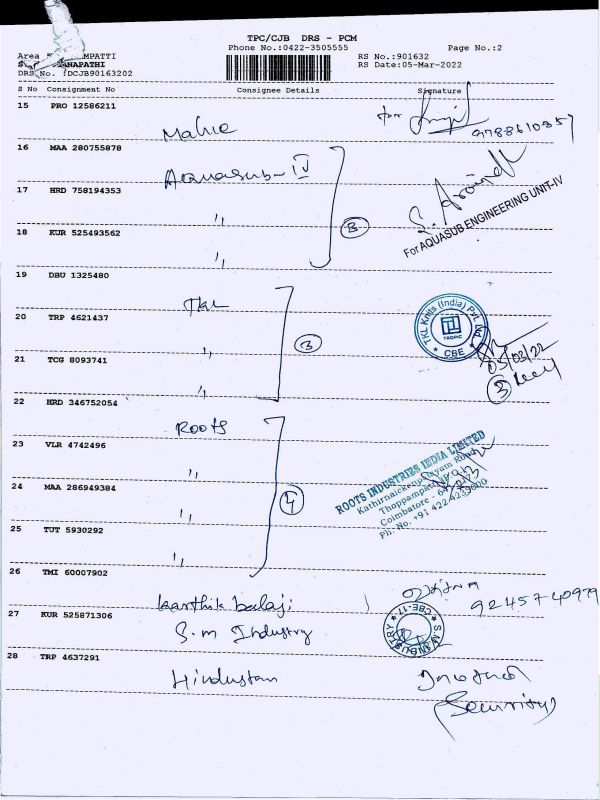 TPC/CJB DRS - PCM
Phone No.:0422-3505555 Page No.:2
Area MPATTI RS No.:901632
ANAPATHI RS Date:05-Mar-2022
DRS No. :DCJB90163202
S No Consignment No Consignee Details Signature
15 PRO 12586211
Mahle for
9788610357
16 MAA 280755878
Aquasub-IV
17 HRD 758194353
,,
3
S. Aravind
For AQUASUB ENGINEERING UNIT-IV
18 KUR 525493562
,,
19 DBU 1325480
TKL
20 TRP 4621437
,,
3
TKL Knits (India) Pvt. Ltd.
TROPIC
CBE
05/03/22
3
21 TCG 8093741
,,
22 HRD 346752054
Roots
23 VLR 4742496
,,
24 MAA 286949384
,,
4
ROOTS INDUSTRIES INDIA LIMITED
Kathirnaickenpalayam Road
Thoppampatti
Coimbatore - 641
Ph. No. +91 422 4233600
25 TUT 5930292
,,
26 TMI 60007902
karthik balaji
9245740979
27 KUR 525871306
S.m Industry
S.M. INDUSTRY
CBE-17
28 TRP 4637291
Hindustan
(Security)